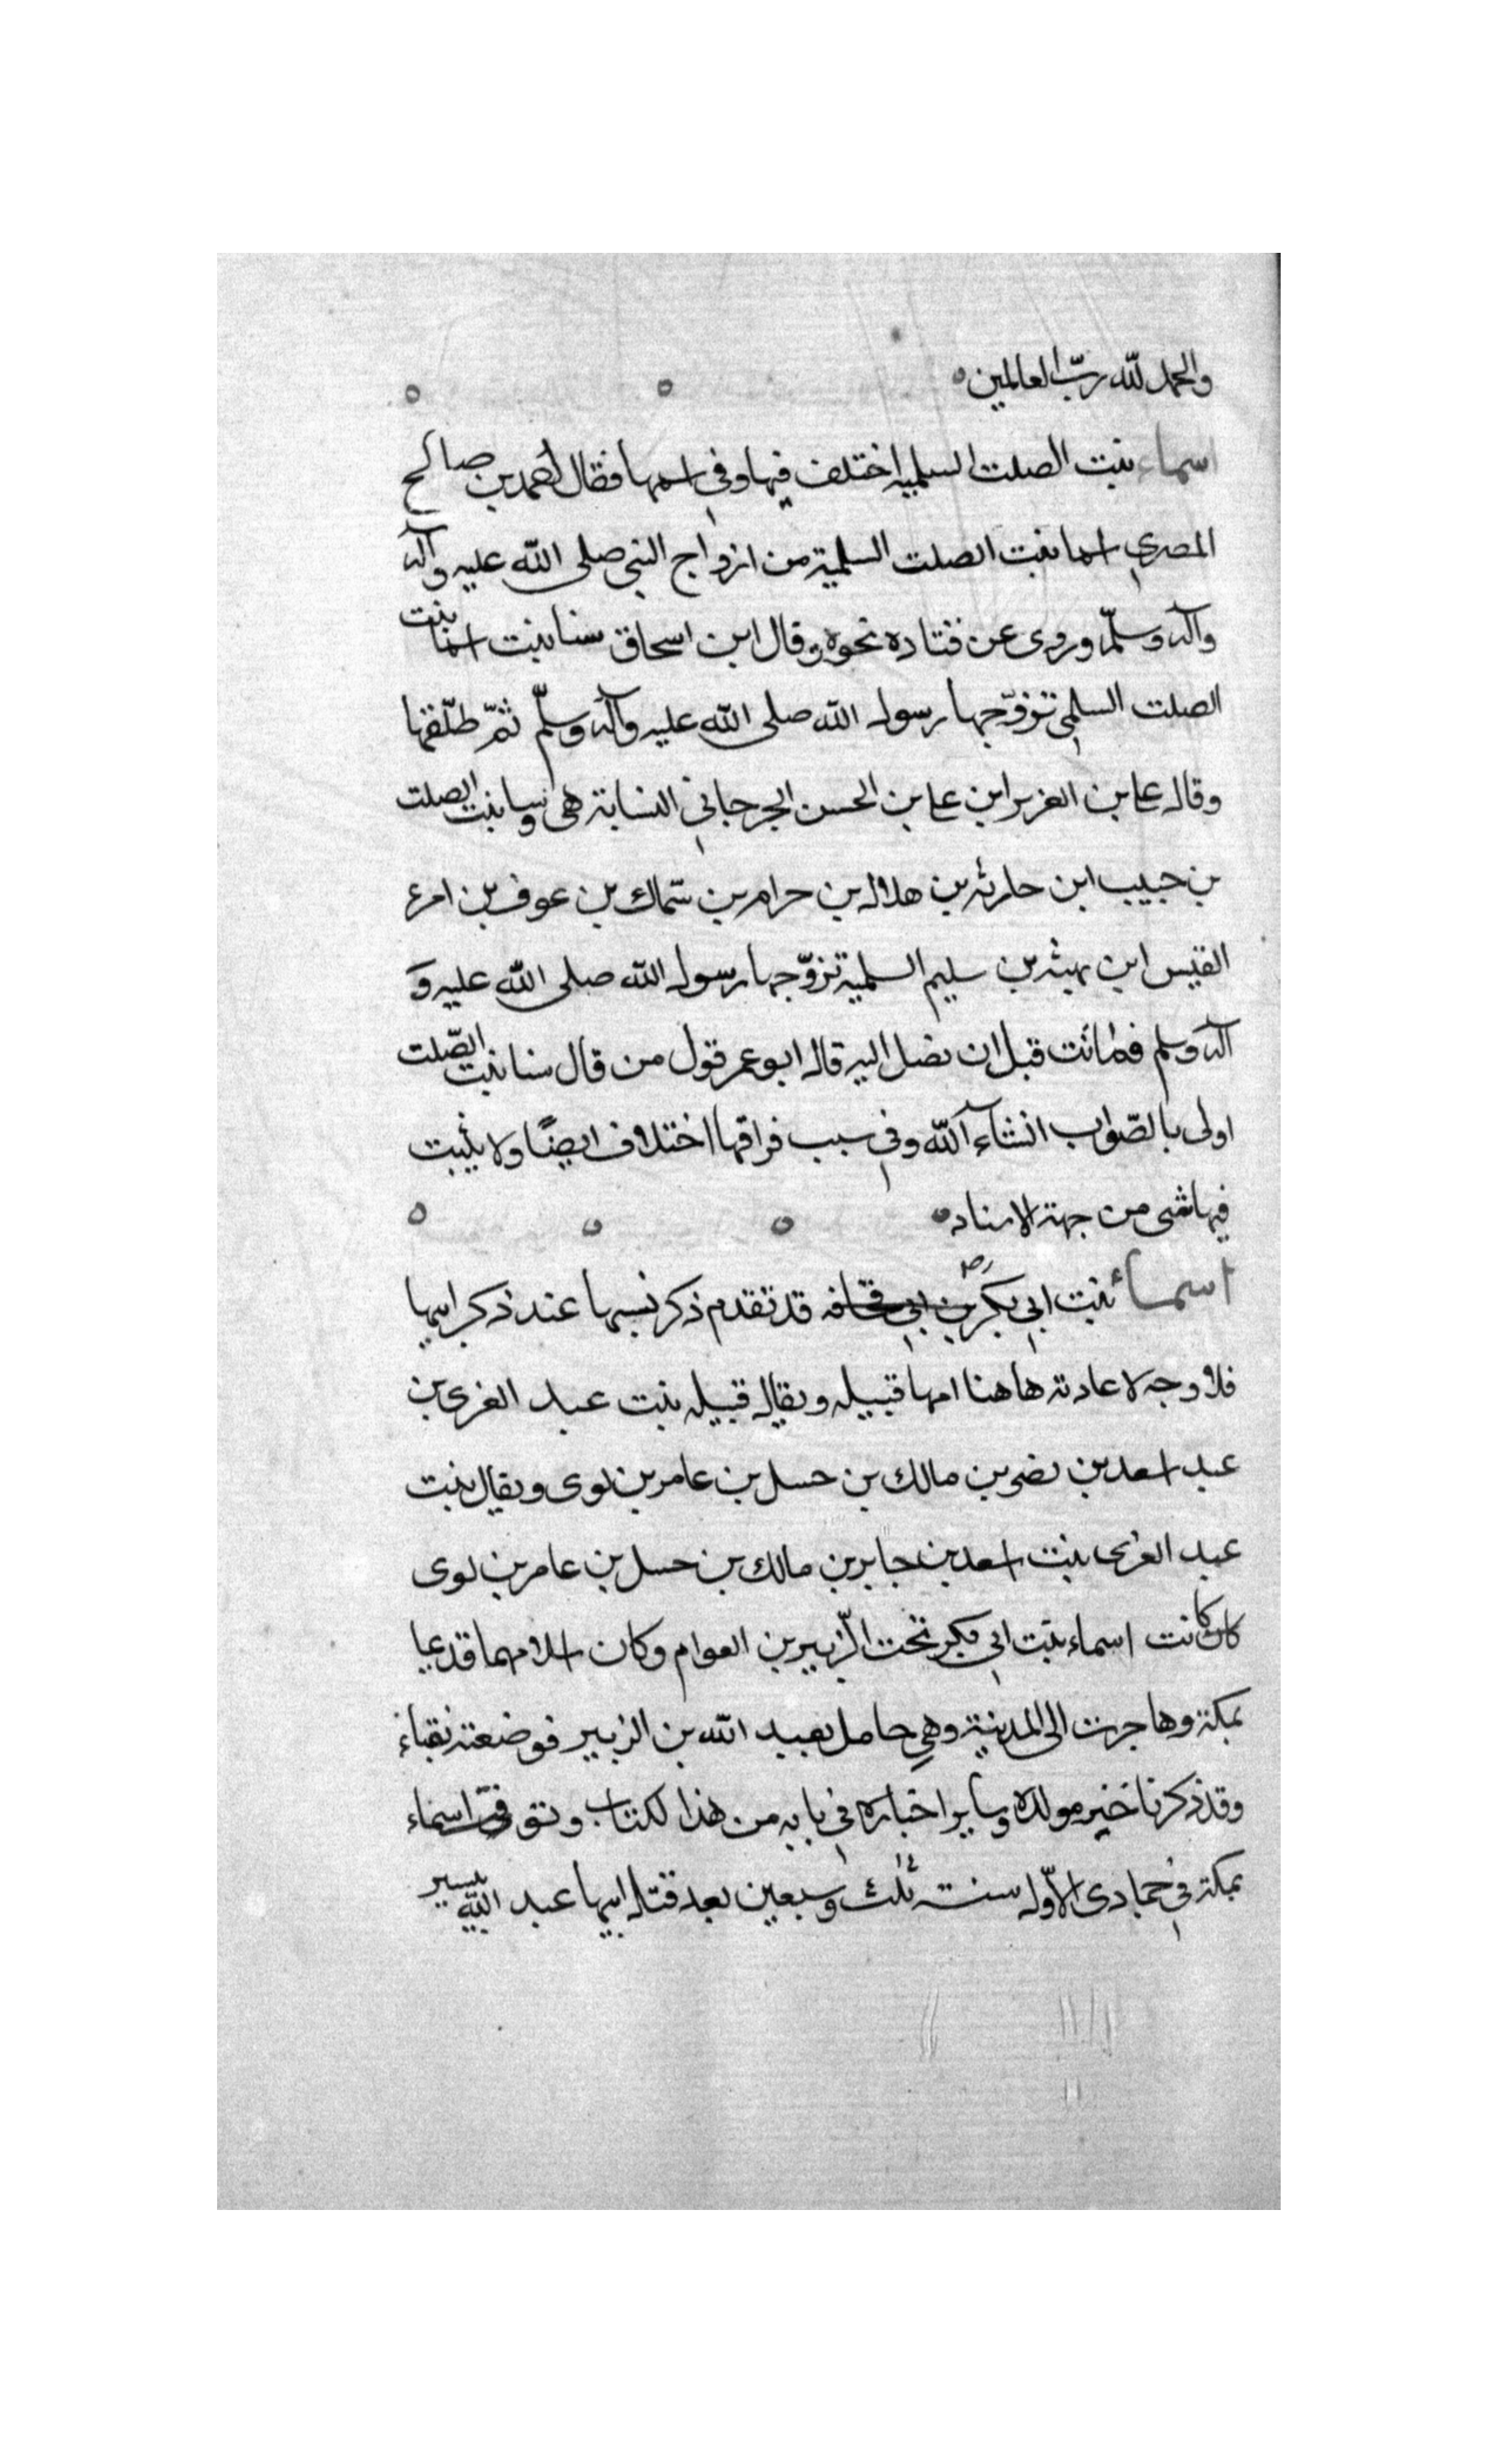 والحمد لله ربّ العالمين
اسماء بنت الصلت السلميه اختلف فيها وفي اسمها فقال احمد بن صالح
المصري اسما بنت الصلت السلمية من ازواج النبي صلى الله عليه وآله
وآله وسلّم وروى عن قتاده نحوه وقال ابن اسحاق سنا بنت اسما بنت
الصلت السلمي تزوّجها رسول الله صلى الله عليه وآله وسلّم ثمّ طلّقها
وقال على بن العزيز ابن على بن الحسن الجرجاني النسابة هى وسنا بنت الصلت
بن حبيب ابن حارثه بن هلال بن حرام بن سّماك بن عوف بن امرء
القيس ابن بهثه بن سليم السلمية تزوّجها رسول الله صلى الله عليه و
آله وسلم فماتت قبل ان تصل اليه قال ابو عمر قول من قال سنا بنت الصّلت
اولى بالصّواب انشاء آلله وفي سبب فراقها اختلاف ايضًا ولا يثبت
فيها شى من جهة الاسناد
اسماء بنت ابي بكر رض بن ابي قحافه قد تقدم ذكر نسبها عند ذكر ابيها
فلا وجه لاعادته هاهنا امها قبيله ويقال قبيله بنت عبد العزى بن
عبد اسعد بن نضر بن مالك بن حسل بن عامر بن لوى ويقال بنت
عبد العزى بنت اسعد بن جابر بن مالك بن حسل بن عامر بن لوى
كان كانت اسماء بنت ابي بكر تحت الزّبير بن العوام وكان اسلامهما قديما
بمكة وهاجرت الى المدينة وهي حامل بعبد الله بن الزبير فوضعته بقباء
وقد ذكرنا خبر مولده وساير اخباره في بابه من هذا لكتاب وتوفّت اسماء
بمكة في جمادى الاوّل سنت ثلث وسبعين بعد قتل ابنها عبد الله بيسير